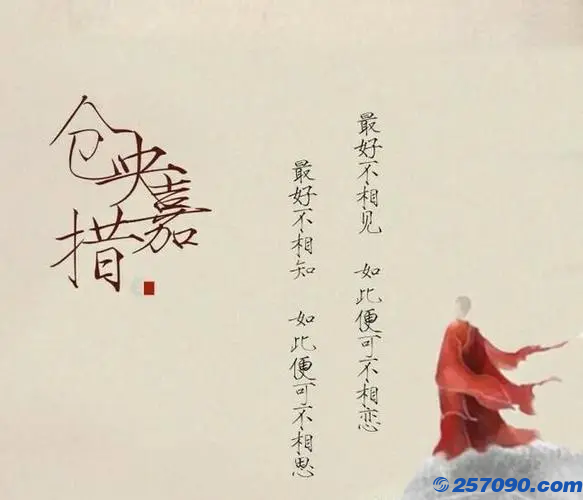 仓央嘉措
最好不相见 如此便可不相恋
最好不相知 如此便可不相思
257090.com